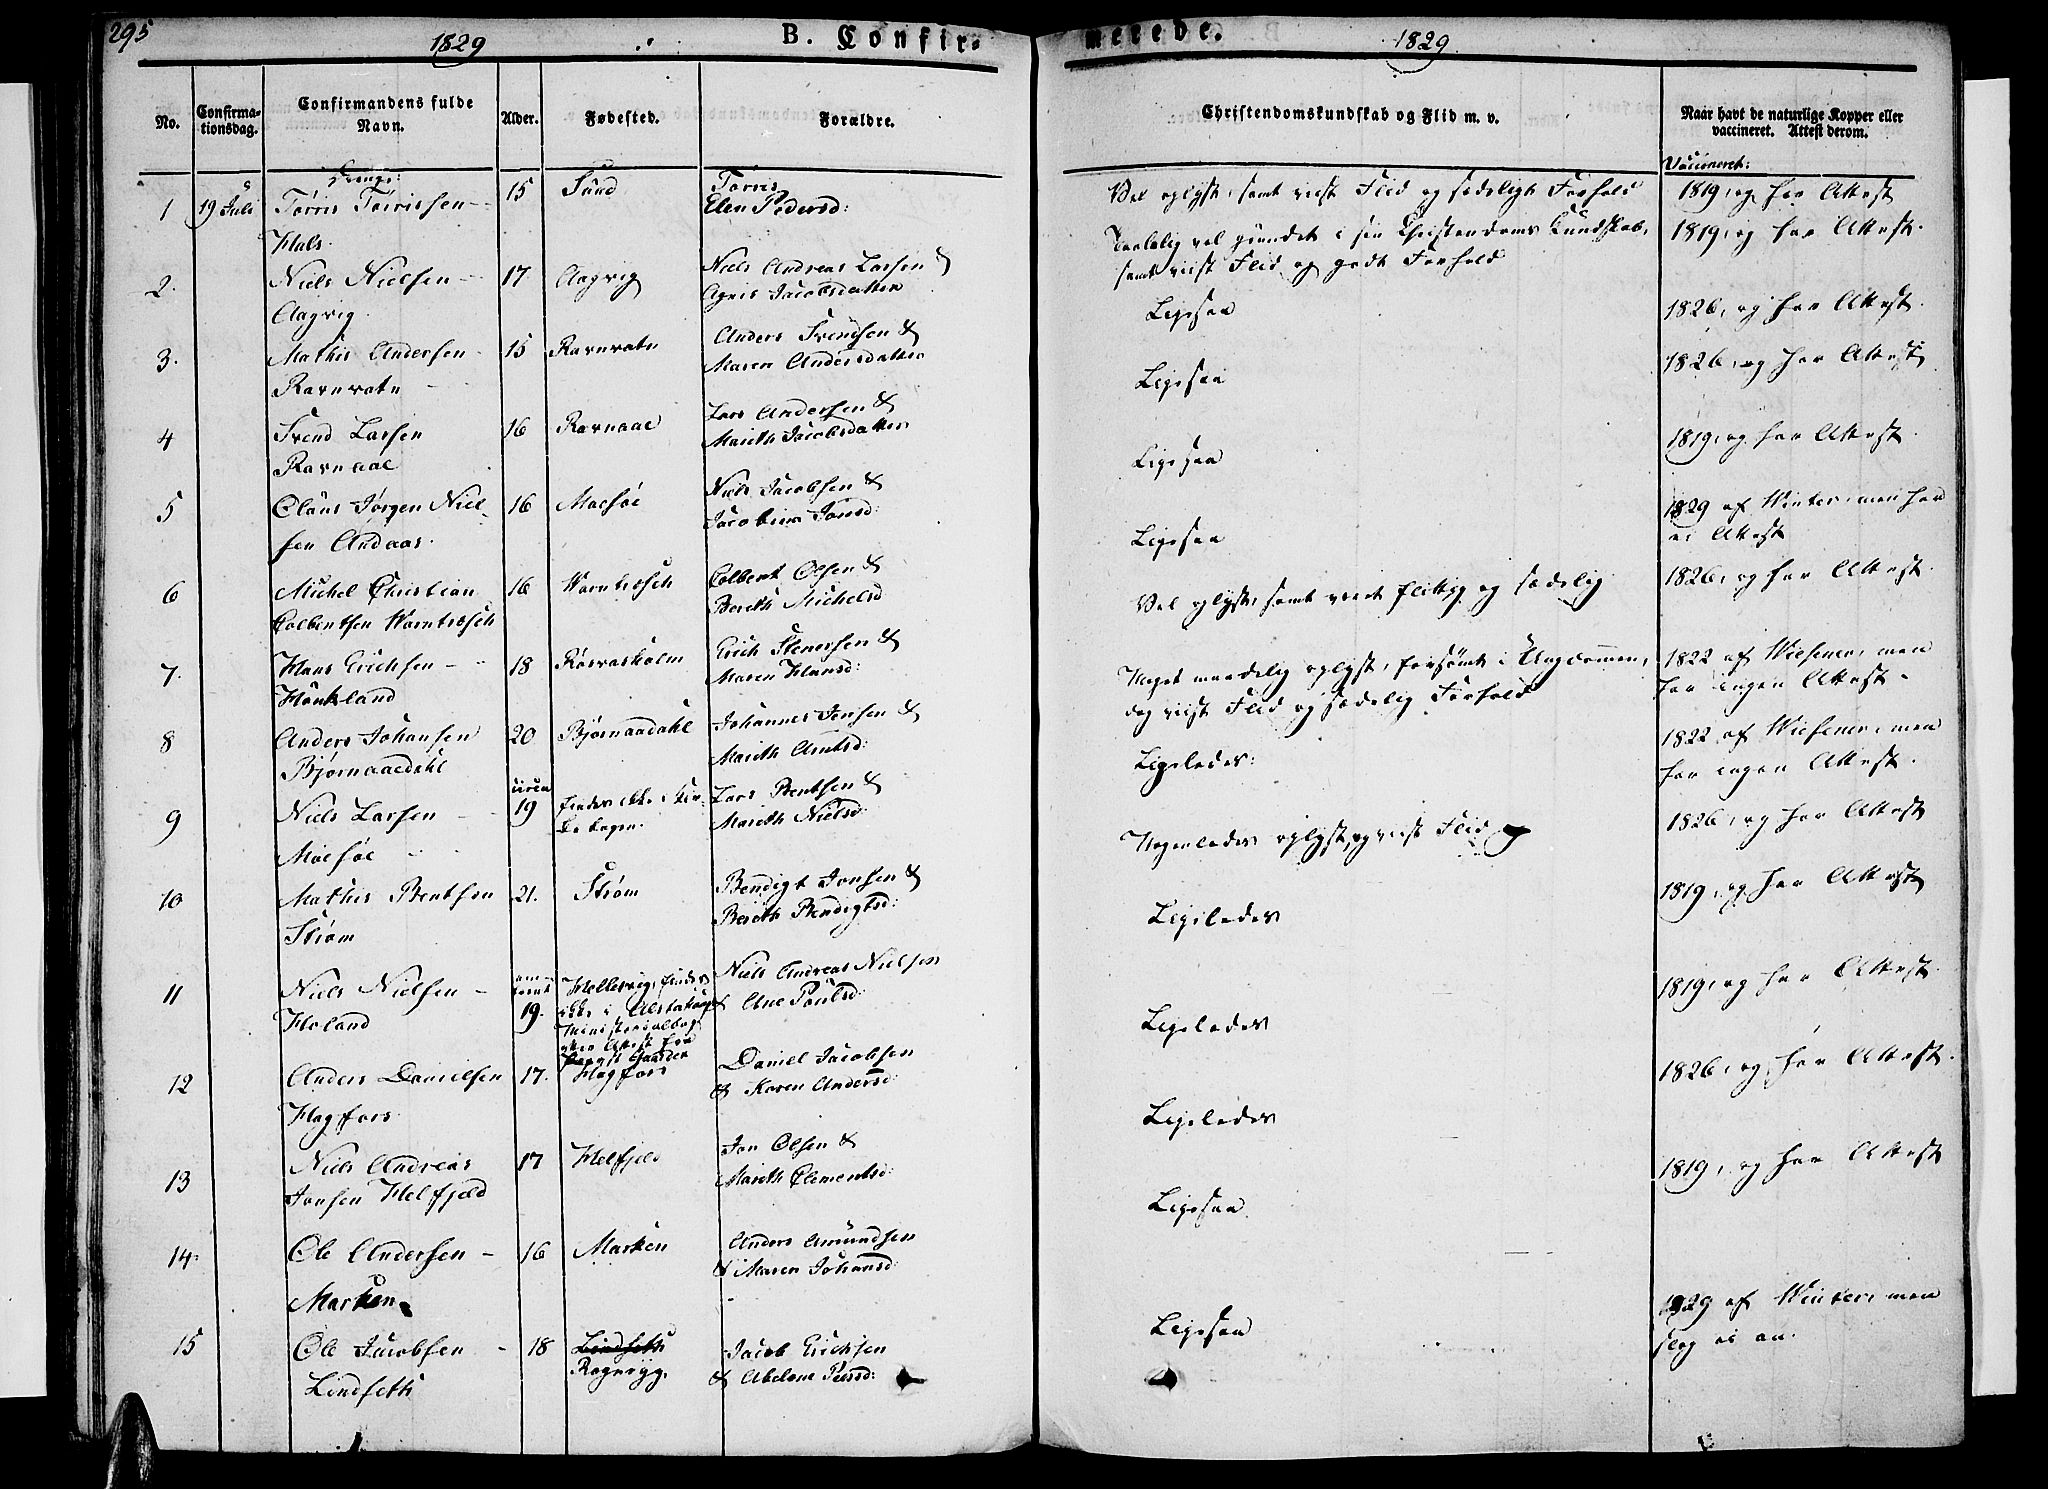 295
1829
B. Confir-
merede.
1829
No.
Confirma-
tionsdag.
Confirmandens fulde
Navn.
Alder.
Fødested.
Forældre.
Christendomskundskab og Flid m. v.
Naar havt de naturlige Kopper eller
vaccineret. Attest derom.
Drenge:
Vaccineret:
1
19 Juli
Tørris Tørrissen
Hals.
15
Sund
Tørris
Elen Pedersd:
Vel oplyst, samt viist Flid og sædeligt Forhold
1819, og har Attest
2.
Niels Nielsen
Aagvig.
17
Aagvig
Niels Andreas Larsen &
Agnis Jacobsdatter
Temmelig vel grundet i sin Christendoms Kundskab,
samt viist Flid og godt Forhold
1819, og har Attest.
3.
Mathis Andersen
Ravnvatn
15
Ravnvatn
Anders Svendsen &
Maren Andersdatter
Ligesaa
1826, og har Attest.
4
Svend Larsen
Ravnaae
16
Ravnaae
Lars Andersen &
Marith Jacobsdatter
Ligesaa
1826, og har Attest
5
Claus Jørgen Niel-
sen Andaas.
16
Maesøe
Niels Jacobsen &
Jacobina Jonsd:
Ligesaa
1819, og har Attest.
6
Michel Christian
Colbentsen Warntræsch
16
Warntræsch
Colbent Olsen &
Berith Michelsd
Ligesaa
1829 af Winter, men har
ei Attest
7.
Hans Erichsen
Hønkland
18
Røsvasholm
Erich Stenersen &
Maren Hansd:
Vel oplyst, samt viist flittig og sædelig
1826, og har Attest.
8
Anders Johansen
Bjørnaaedahl
20
Bjørnaadahl
Johannes Jensen &
Marith Arntsd:
Noget maadelig oplyst, forsømt i Ungdommen,
dog viist Flid og sædelig Forhold
1822 af Wiesener, men
har ingen Attest.
9
Niels Larsen
Moesøe
circa
19
findes ikke i Kir-
ke bogen.
Lars Bentsen &
Marith Nielsd:
Ligeledes:
1822 af Wiesener, men
har ingen Attest.
10
Mathis Bentsen
Strøm
21.
Strøm
Bendigt Jonsen &
Berith Bendigtsd:
Nogenledes oplyst, og viist Flid
1826, og har Attest
11
Niels Nielsen
Holand
19.
Hellesvig, findes
ikke i Alstahoug
Ministerialbog
Niels Andreas Nielsen
& Ane Poulsd:
Ligeledes
1819, og har Attest
12
Anders Danielsen
Hagfors
17.
Hagfors
Daniel Jacobsen
& Karen Andersd:
Ligeledes
1819, og har Attest.
13
Niels Andreas
Jonsen Helfjeld
17
Helfjeld
Jon Olsen &
Marith Clementsd:
Ligeledes
1826, og har Attest.
14.
Ole Andersen
Marken
16
Marken
Anders Amundsen
& Maren Johansd:
Ligesaa
1819, og har Attest
15
Ole Jacobsen
Lindseth
18
Lindseth
Røgnryg.
Jacob Erichsen
& Abelone Peersd:
Ligesaa
1829 af Winter, men
slog ei an.